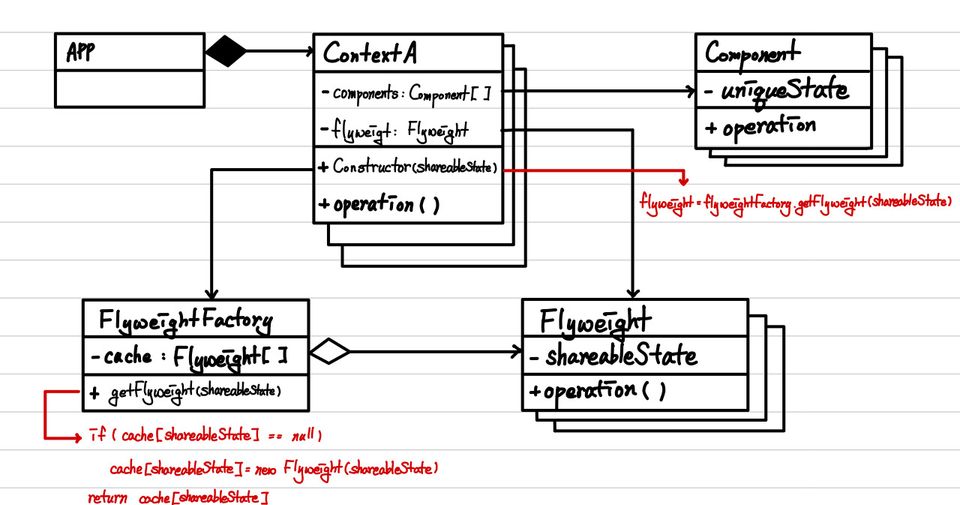 APP
ContextA
- components: Component[]
- flyweigt: Flyweight
+ Constructor(shareableState)
+ operation()
Component
- uniqueState
+ operation
flyweight = flyweightFactory.getFlyweight(shareableState)
FlyweightFactory
- cache: Flyweight[]
+ getFlyweight(shareableState)
Flyweight
- shareableState
+ operation()
if( cache[shareableState] == null)
cache[shareableState] = new Flyweight(shareableState)
return cache[shareableState]